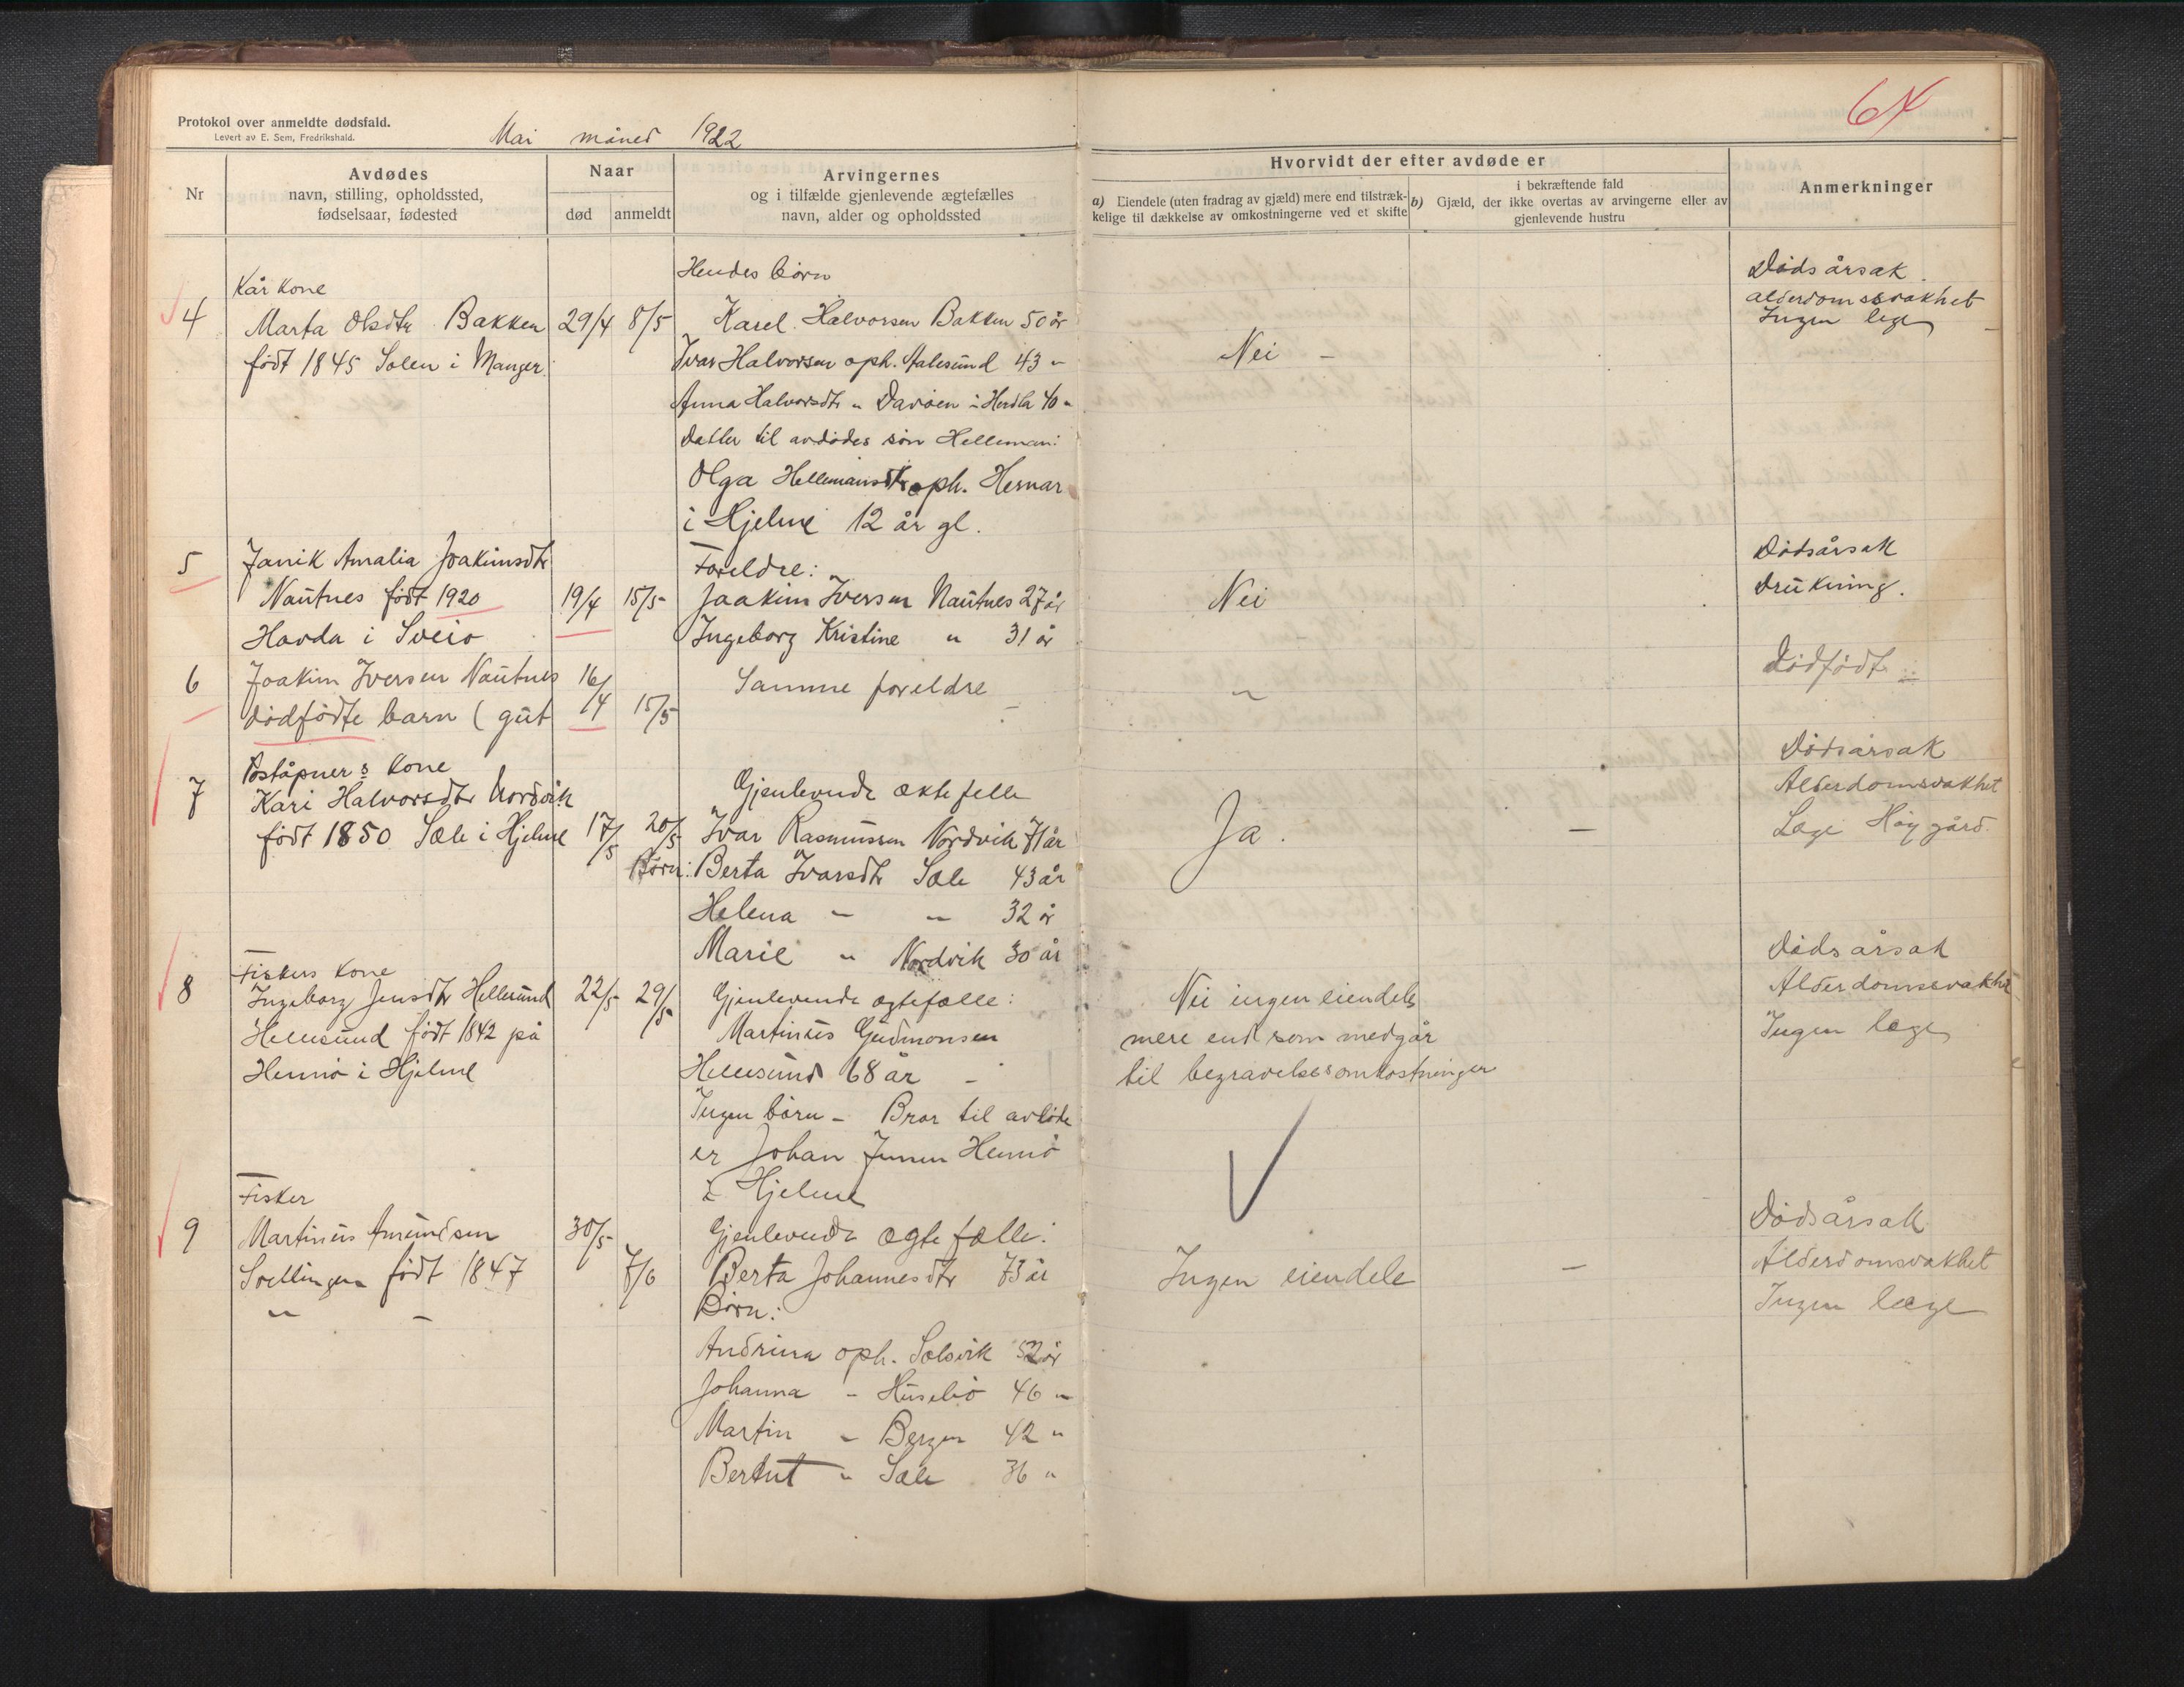 Protokol over anmeldte dødsfald.
Levert av E. Sem, Fredrikshald.
Mai måned 1922
64
Nr
Avdødes
navn, stilling, opholdssted,
fødselsaar, fødested
Naar
død
anmeldt
Arvingernes
og i tilfælde gjenlevende ægtefælles
navn, alder og opholdssted
Hvorvidt der efter avdøde er
a) Eiendele (uten fradrag av gjæld) mere end tilstræk-
kelige til dækkelse av omkostningerne ved et skifte
b) i bekræftende fald
Gjæld, der ikke overtas av arvingerne eller av
gjenlevende hustru
Anmerkninger
4
Kår Kone
Marta Olsdtr Bakken
født 1845 Solen i Manger
29/4 8/5
Hendes børn
Karel Halvorsen Bakken 50 år
Ivar Halvorsen oph. Aalesund 43 "
Anna Halvorsdtr " Davøen i Herdla 40 "
Datter til avdødes søn Helleman:
Olga Hellemansdtr oph. Hernar
i Hjelme 12 år gl.
Nei -
Dødsårsak
alderdomssvakhet
Ingen lege
5
Janik Amalia Joakimsdtr
Nautnes født 1920
Havda i Sveio
19/4 15/5
Foreldre:
Joakim Iversen Nautnes 27 år
Ingeborg Kristine " 31 år
Nei
Dødsårsak
Drukning.
6
Joakim Iversen Nautnes
dødfødte barn (gut
16/4 15/5
Samme foreldre
"
Dødfødt
7
Poståpners Kone
Kari Halvorsdtr Nordvik
født 1850 Sæle i Hjelme
17/5 20/5
Gjenlevende ektefelle
Ivar Rasmussen Nordvik 71 år
Børn: Berta Ivarsdtr Sæle 43 år
Helena " " 32 år
Marie " Nordvik 30 år
Ja.
-
Dødsårsak
Alderdomsvakhet
Lege Høygård.
8
Fiskers Kone
Ingeborg Jensdtr Hellesund
Hellesund født 1842 på
Hennø i Hjelme
22/5 29/5
Gjenlevende egtefælle:
Martinus Gudmonsen
Hellesund 68 år -
Ingen børn - Bror til avdøde
er Johan Jensen Hennø
i Hjelme
Nei ingen eiendele
mere end som medgår
til begravelsesomkostninger
Dødsårsak
Alderdomssvakhet
Ingen læge
9
Fisker
Martinus Amundsen
Soellingen født 1847
" -
30/5 7/6
Gjenlevende egtefælle:
Berta Johannesdtr 73 år
Børn:
Andrina oph. Solsvik 52 år
Johanna - Husebø 46 "
Martin - Bergen 42 "
Bertut " Sæle 36 "
Ingen eiendele
-
Dødsårsak
Alderdomsvakhet
Ingen læge